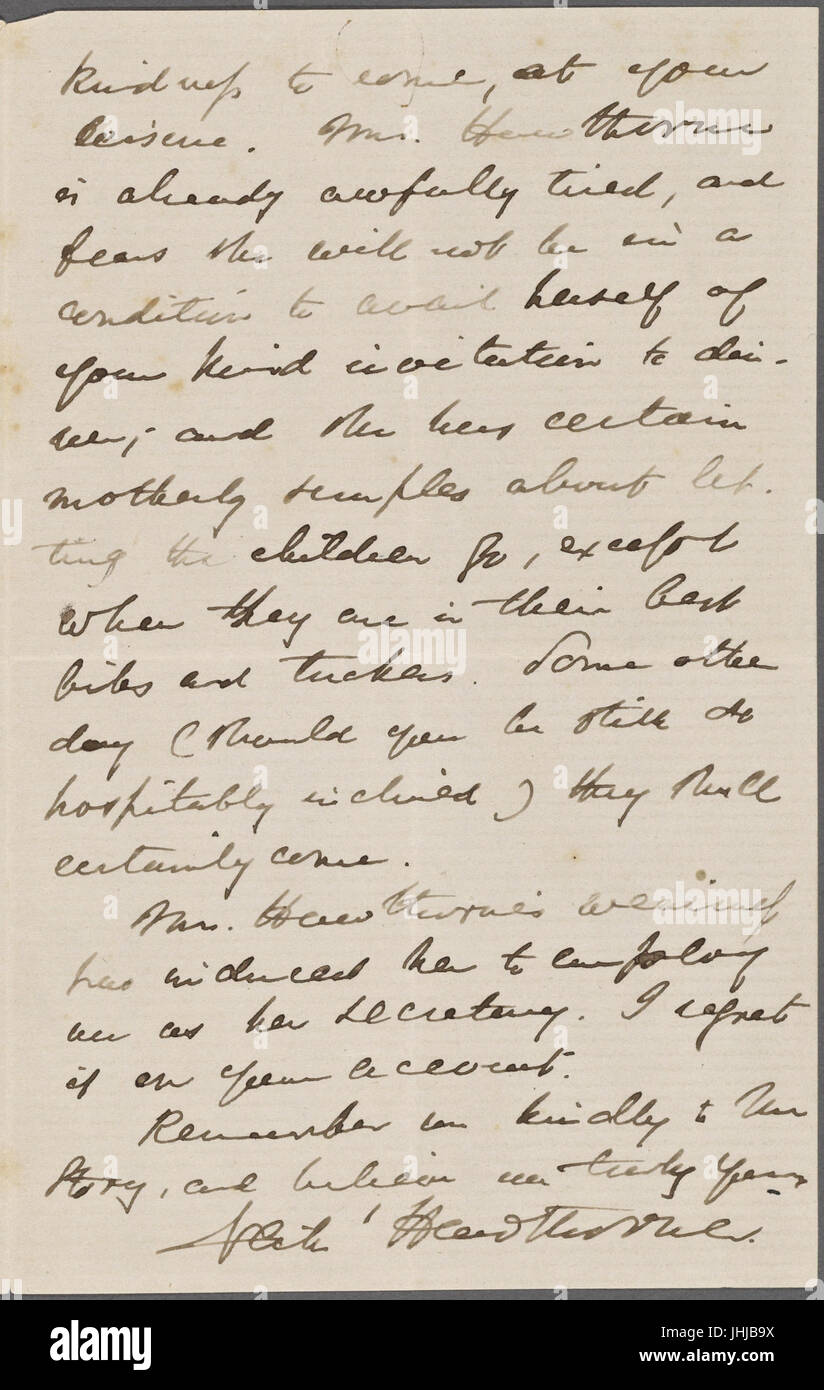 kindness to come, at your
leisure. Mrs. Hawthorne
is already awfully tired, and
fears she will not be in a
condition to avail herself of
your kind invitation to din-
ner; and she has certain
motherly scruples about let-
ting the children go, except
when they are in their best
bibs and tuckers. Some other
day (should you be still so
hospitably inclined) they shall
certainly come.
Mrs. Hawthorne's weariness
has induced her to employ
me as her secretary. I regret
it on your account.
Remember me kindly to Mr
Story, and believe me truly Yours
Nath' Hawthorne.
alamy
alamy stock photo
JHJB9X
www.alamy.com